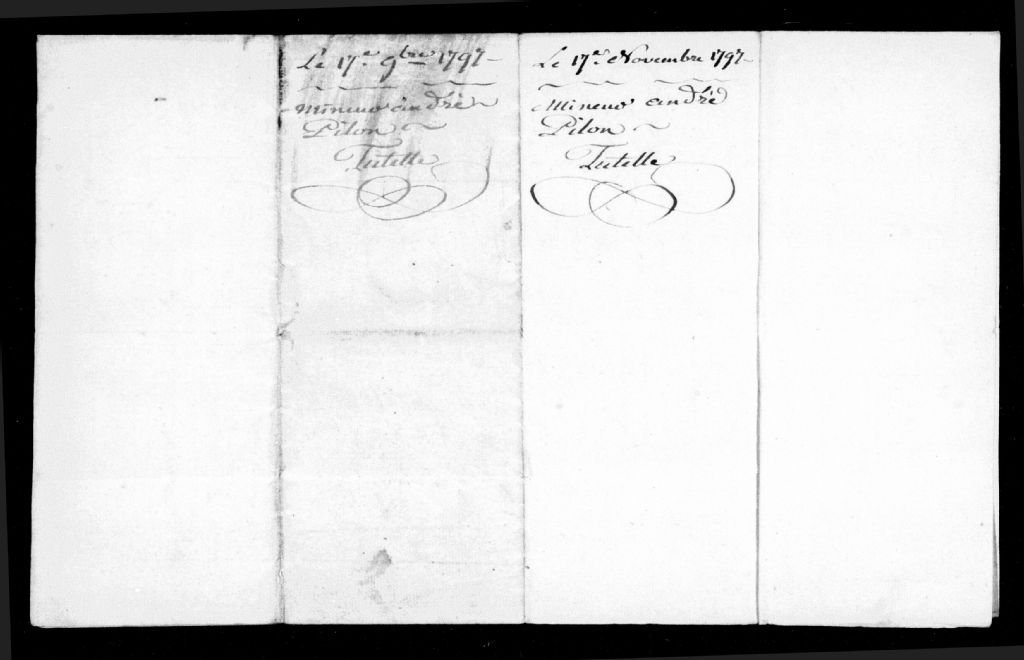 Le 17.e 9bre 1797
mineurs andré
Pilon
Tutelle
Le 17.e Novembre 1797
Mineurs andré
Pilon
Tutelle